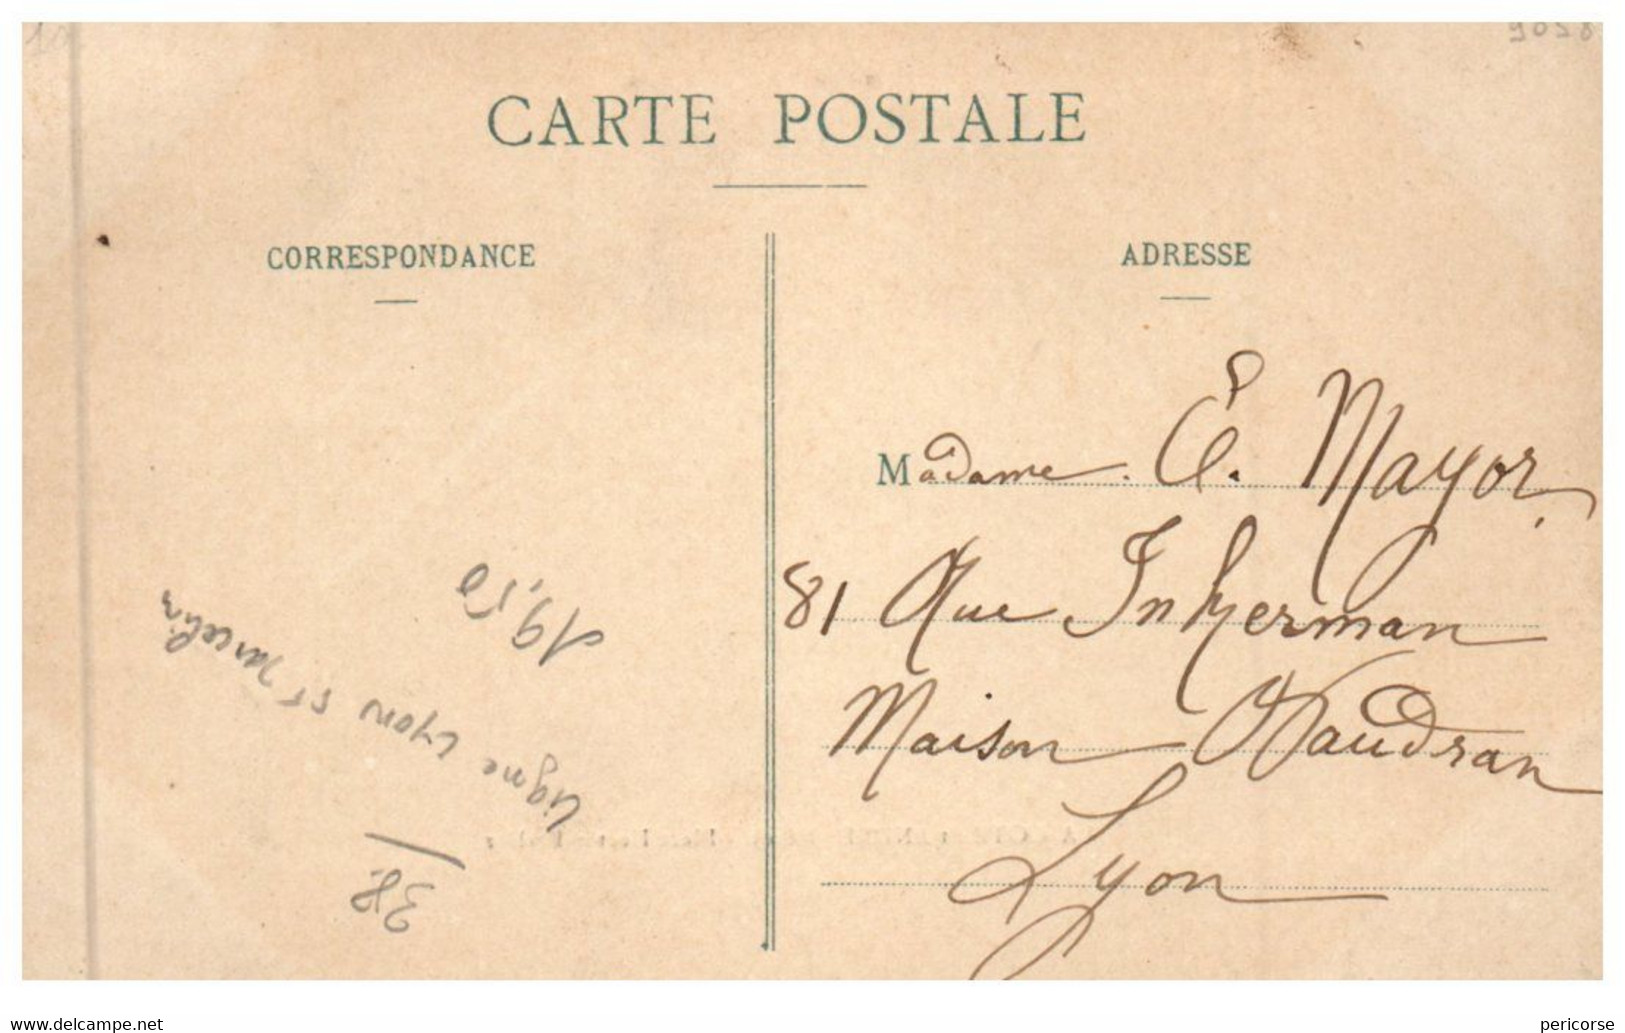 9028
CARTE POSTALE
CORRESPONDANCE
ADRESSE
Madame. E. Mayor.
81 Rue Inkerman
Maison Vaudran
Lyon
19,50
Ligne Lyon St Marcelin
38.
www.delcampe.net
pericorse